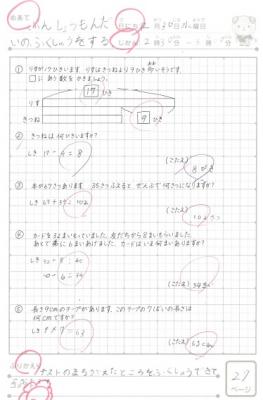 めあて
ぶんしょうもんだ
いのふくしゅうをする
① りすが17ひきいます。りすはきつねより9ひき多いそうです。
□にあう数をかきましょう。
17 ひき
りす
きつね
9 ひき
② きつねは何びきいますか？
しき 17-9=8
(こたえ) 8ひき
③ 本が67さつあります。35さつふえると ぜんぶで何さつになりますか？
しき 67+35=102
(こたえ) 102さつ
④ カードを32まいもっていました。友だちから8まいもらいました。
あとで弟に6まいあげました。カードはいま何まいありますか？
しき 32+8=40
40-6=34
(こたえ) 34まい
⑤ 長さ9cmのテープがあります。このテープの7ばいの長さは
何cmですか？
しき 9×7=63
(こたえ) 63cm
ふりかえり
テストのまちがえたところをふくしゅうできて
27
ページ